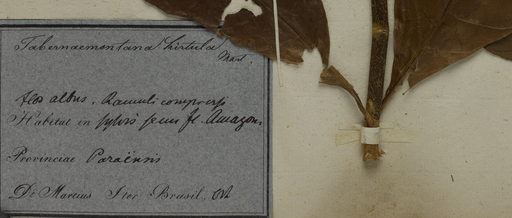 Tabernaemontana hirtula
Mart.
flos albus. Ramuli compressi
Habitat in sylvis secus fl. Amazon.
Provinciae Paraënsis
Dr Martius Iter Brasil.